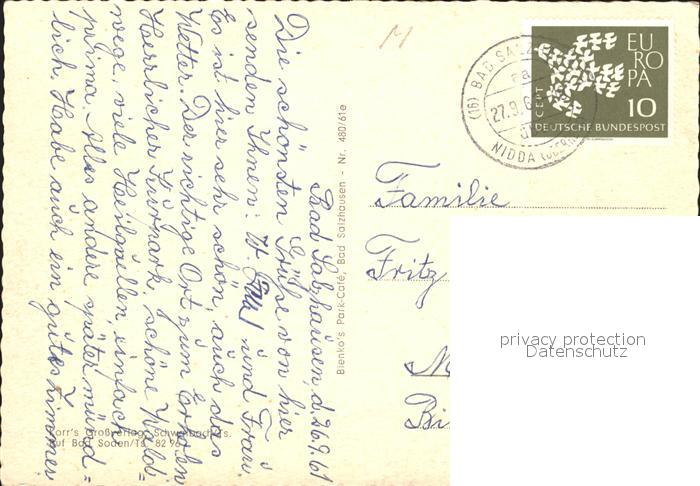 Bad Salzhausen, d. 26.9.61
Die schönsten Grüße von hier
senden Ihnen: W. und Frau.
Es ist hier sehr schön, auch das
Wetter. Der richtige Ort zum Erholen
Herrlicher Kurpark, schöne Wald-
wege, viele Heilquellen, einfach
prima. Alles andere später münd=
lich. Habe auch ein gutes Zimmer
Bienko's Park-Café, Bad Salzhausen - Nr. 480/61e
orr's Großverlag, Schwalbach/Ts.
uf Bad Soden/Ts. 82 96
M
(16) BAD SALZ
27.9.6
NIDDA
EU
RO
PA
CEPT
10
DEUTSCHE BUNDESPOST
Familie
Fritz
privacy protection
Datenschutz
M
Bi